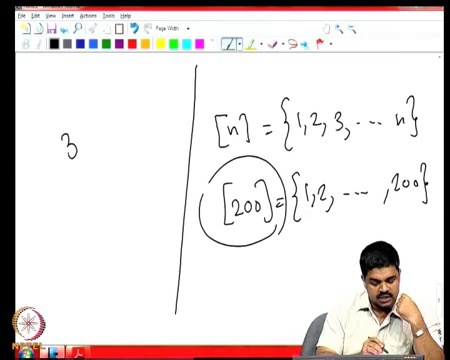 File Edit View Insert Actions Tools Help
Page Width
3
[n] = {1, 2, 3, ... n}
[200] = {1, 2, ... , 200}